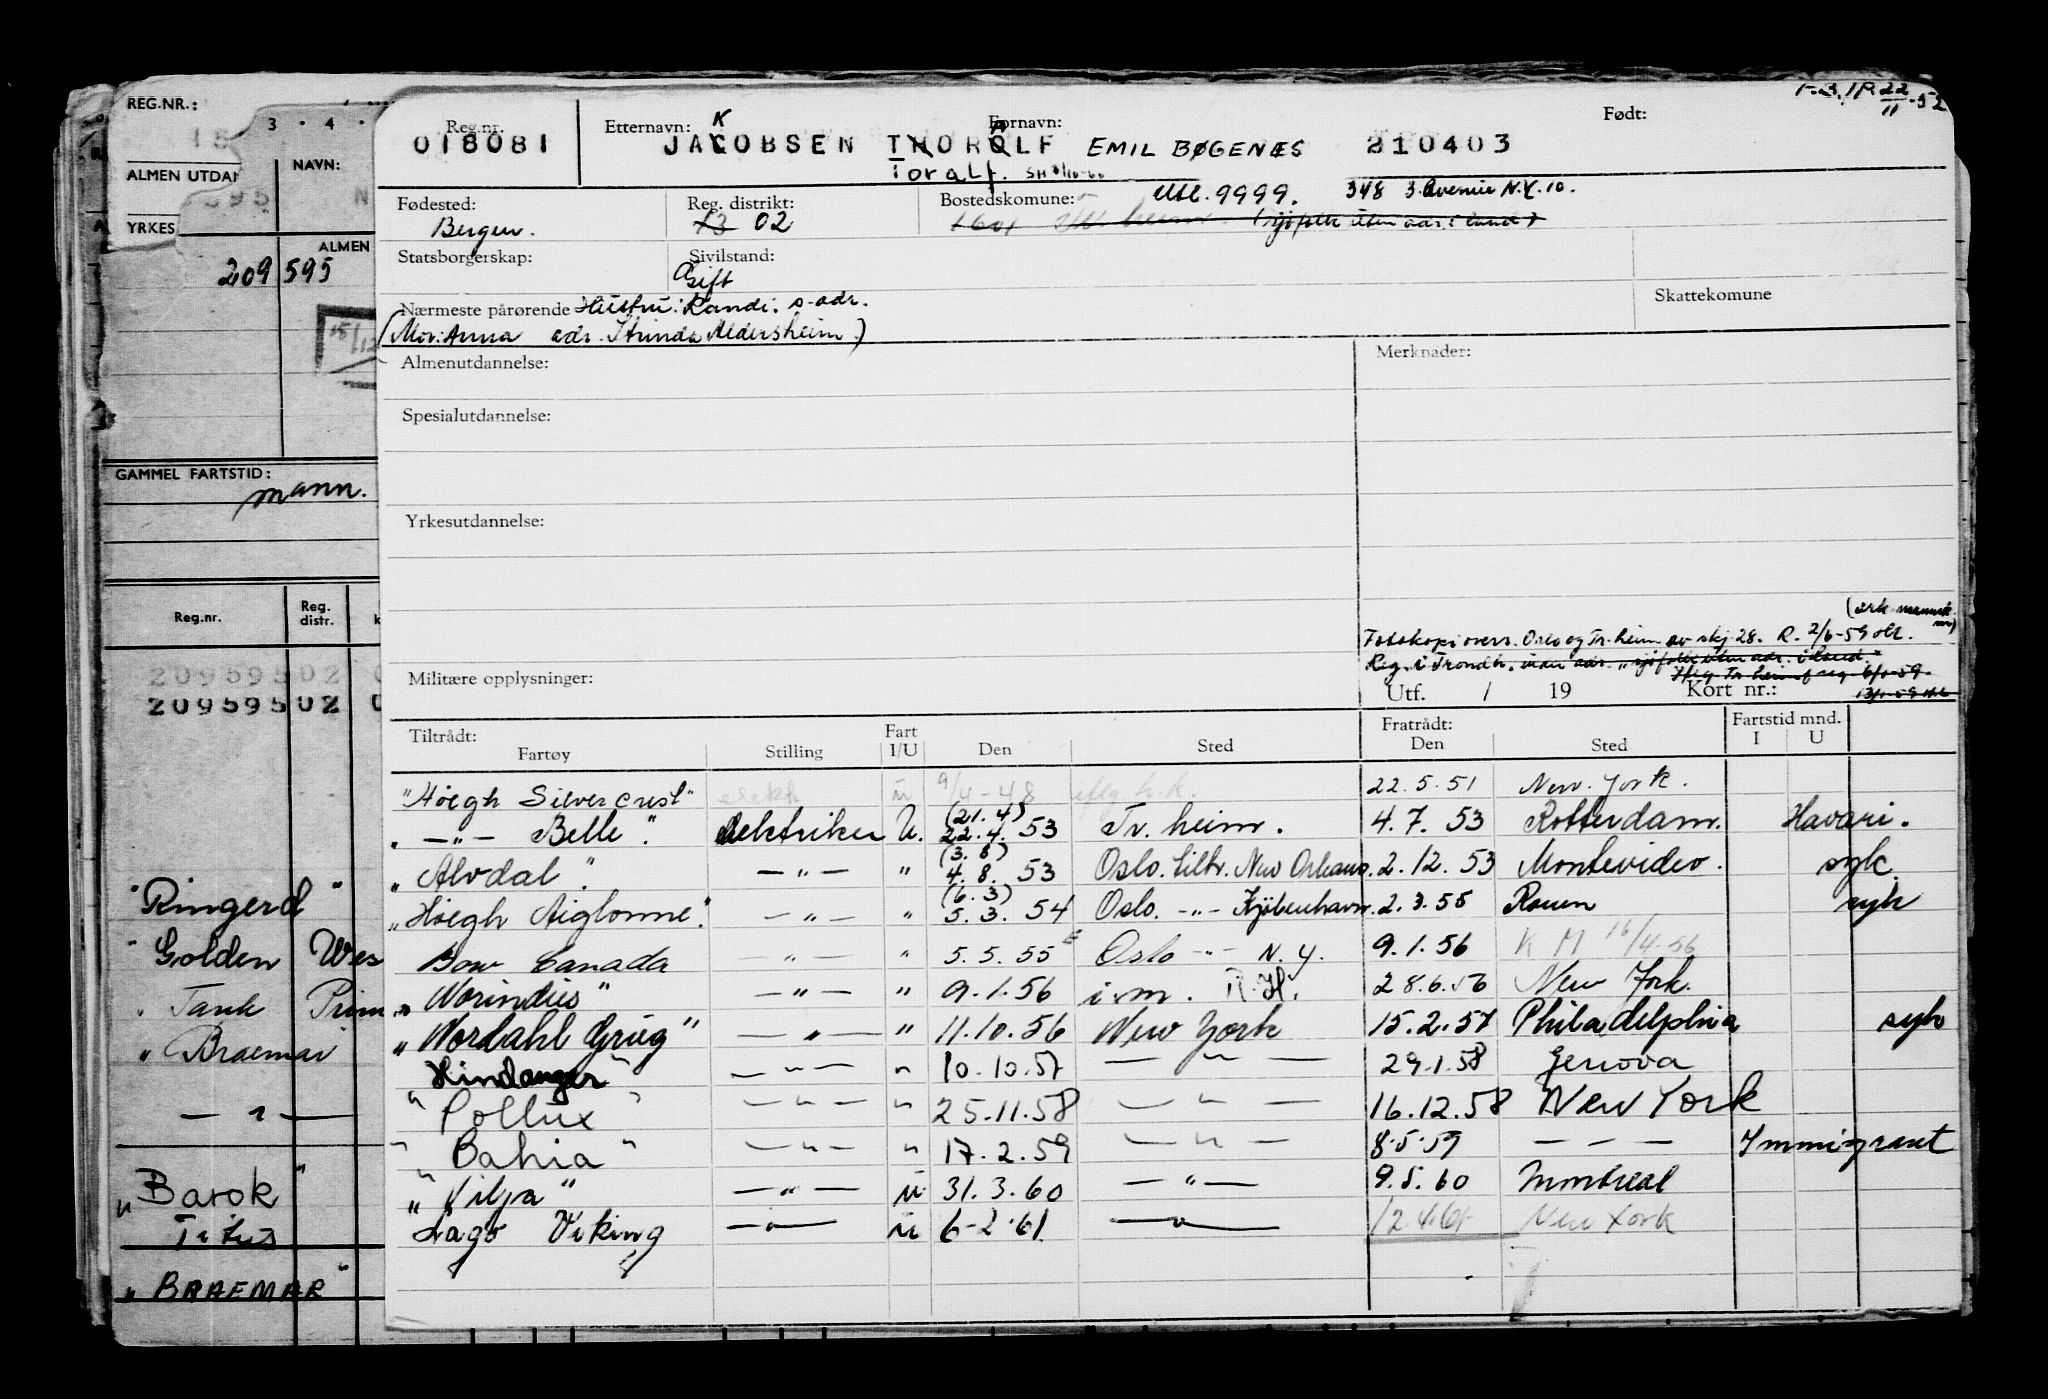 REG.NR.:
3 · 4 ·
ALMEN UTDAN
NAVN:
YRKES
ALMEN
209 595
15/12
GAMMEL FARTSTID:
mann.
Reg.nr.
Reg. distr.
20959502
20959502
"Ringerd"
"Golden Wes
" Tank Prim
" Braemar
— " —
"Barok"
Titus
"BRAEMAR"
22/11-52
Reg.nr.
Etternavn:
Fornavn:
Født:
018081 JACOBSEN THOROLF EMIL BØGENÆS 210403
K A
Toralf.
Fødested:
Bergen.
Reg. distrikt:
13 02
Bostedskommune:
Utl. 9999. 348 3. Avenue N.Y. 10.
1601 Tr. heim. (sjøfolk uten adr. i land)
Statsborgerskap:
Sivilstand:
Gift
Nærmeste pårørende Hustru: Randi. s. adr.
(Mor: Anna adr. Strinda Aldersheim.)
Skattekomune
Almenutdannelse:
Merknader:
Spesialutdannelse:
Yrkesutdannelse:
Fotokopi overs. Oslo og Tr. heim av skj. 28. R. 2/6-59
Reg. i Trondh. uten adr. "sjøfolk uten adr. i land."
Militære opplysninger:
Utf. / 19 Kort nr.:
Tiltrådt:
Fartøy Stilling Fart I/U Den Sted
Fratrådt: Den Sted
Fartstid mnd. I U
"Høegh Silvercrest" elektr. u 9/4-48 22.5.51 New York.
" —"— Belle". Elektriker U. (21.4) 22.4.53 Tr. heim. 4.7.53 Rotterdam. Havari.
"Alvdal". —"— " (3.8) 4.8.53 Oslo. tiltr. New Orleans. 2.12.53 Montevideo. syk.
"Høegh Aiglonne". —"— " (6.3) 5.3.54 Oslo. —"— Kjøbenhavn. 2.3.55 Rouen syk
Bow Canada —"— " 5.5.55 Oslo —"— N.Y. 9.1.56 K M 16/4.56
"Norindies" —"— " 9.1.56 i.m. R.H. 28.6.56 New York.
"Nordahl Grieg" —"— " 11.10.56 New York 15.2.57 Philadelphia syk
Hindanger" —"— " 10.10.57 —"— 29.1.58 Genova
"Pollux" —"— " 25.11.58 —"— 16.12.58 New York
"Bahia" —"— " 17.2.59 —"— 8.5.59 — — — Immigrant
"Vilja" —"— u 31.3.60 —"— 9.5.60 Montreal
Lago Viking —"— u 6-2-61 —"— 12.4.61 New York